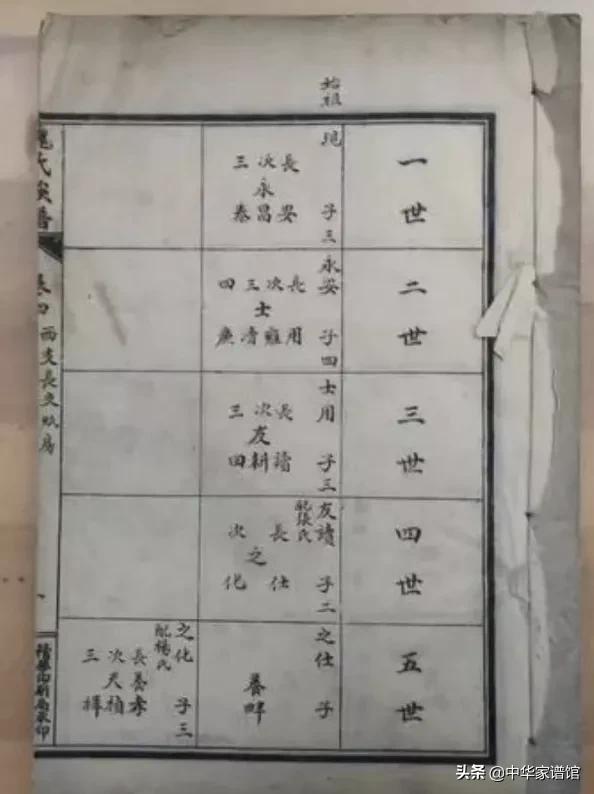 始祖
一世
子三
長次三
永
安昌泰
二世
永安 子四
長次三四
士
用雍清廉
三世
士用 子三
長次三
友
讀耕田
四世
友讀 子二
配張氏
長次
之
仕化
五世
之仕 子
養畔
之化 子三
配楊氏
長養孝
次天
三
氏族譜
卷四 西支長支 房
印刷局承印
头条 @中华家谱馆